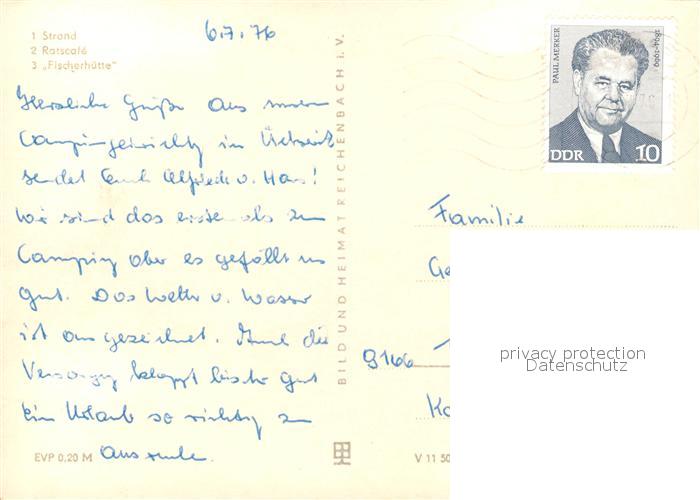 1 Strand
2 Ratscafé
3 „Fischerhütte"
6.7.76
Herzliche Grüße aus
Campingeinrichtg in
sendet Euch Alfred u. Hans!
Wir sind das erste als zum
Camping aber es gefällt uns
gut. Das Wetter u. Wasser
ist ausgezeichnet. Auch die
Versorgung klappt bisher gut
Ein Urlaub so richtig zum
ausruhn.
EVP 0,20 M
BILD UND HEIMAT REICHENBACH I. V.
PAUL MERKER
1894-1969
DDR 10
Familie
Ge
9166
Ka
V 11 50
privacy protection
Datenschutz